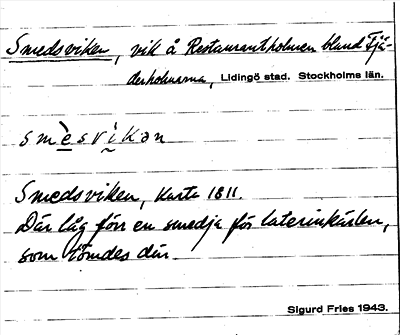 Smedsviken, vik å Restaurantholmen bland Fjä-
derholmarna, Lidingö stad. Stockholms län.
smèsvìkən
Smedsviken, Karta 1811.
Där låg förr en smedja för laterinkärlen,
som tömdes där.
Sigurd Fries 1943.